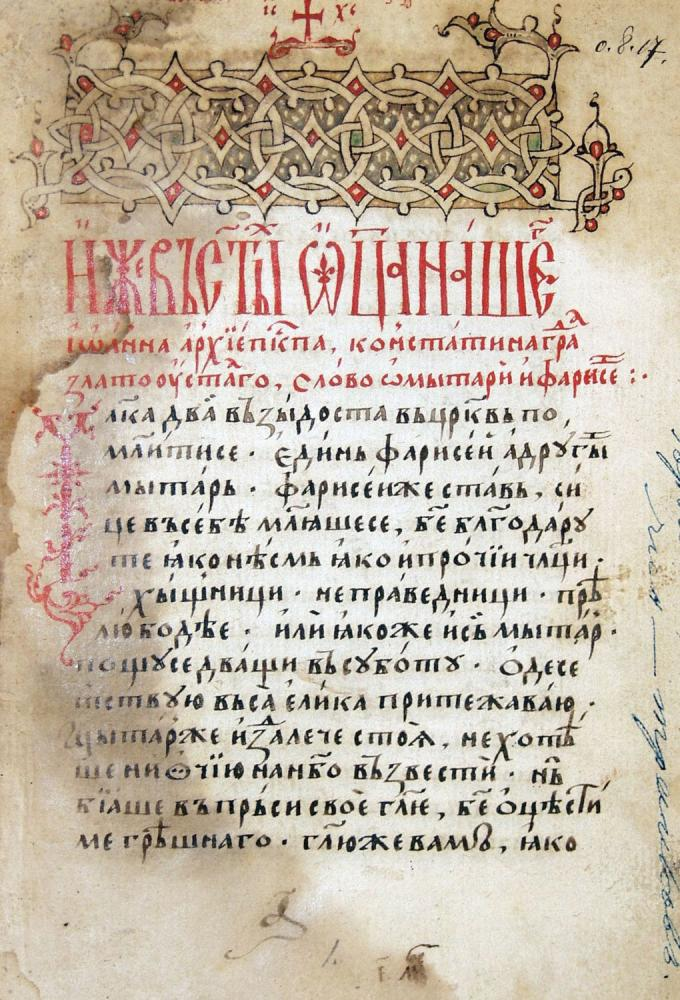 іс хс
о.8.17.
и҆же въ ст҃ы ѿц҃а наше г
іѡанна архїеп҇кпа, константїнаграда
златооустаго, слово ѡ мытари и фарисе :·
члка два̀ възыдоста въ црквь по
млитисе · единь фарисеи а дрꙋгы
мытарь · фарисеи же ставь, си
це въ себѣ млꙗшесе, бе благодарꙋ
те ꙗко нѣсмь ꙗко и прочїи члци ·
хыщници · неправедници · прѣ
любодѣе · или ꙗкоже и съ мытар ·
пощꙋсе дващи въ сꙋботꙋ · Одесе
тствꙋю въса̀ елика притежаваю ·
мытар же издалече стоѧ, не хотѣ
ше ни Очїю на нбо възвести · нь
бїꙗше въ прьси свое гле, бе оцѣсти
ме грѣшнаго · глю же вамꙋ, ꙗко